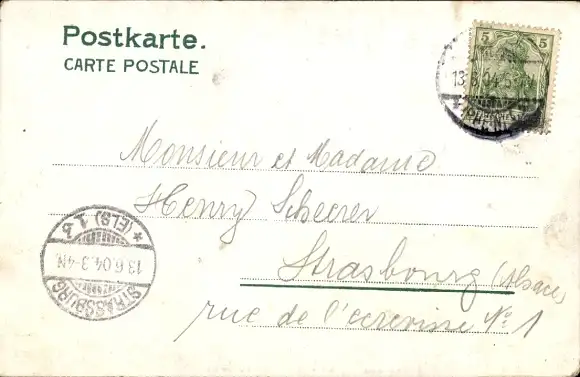 Postkarte.
CARTE POSTALE
5 5
13.6.04.
Monsieur et Madame
Henry Scheerer
Strasbourg (Alsace)
rue de l'ecrevisse No 1
STRASSBURG
13.6.04.3-4N.
* (ELS) 1.b